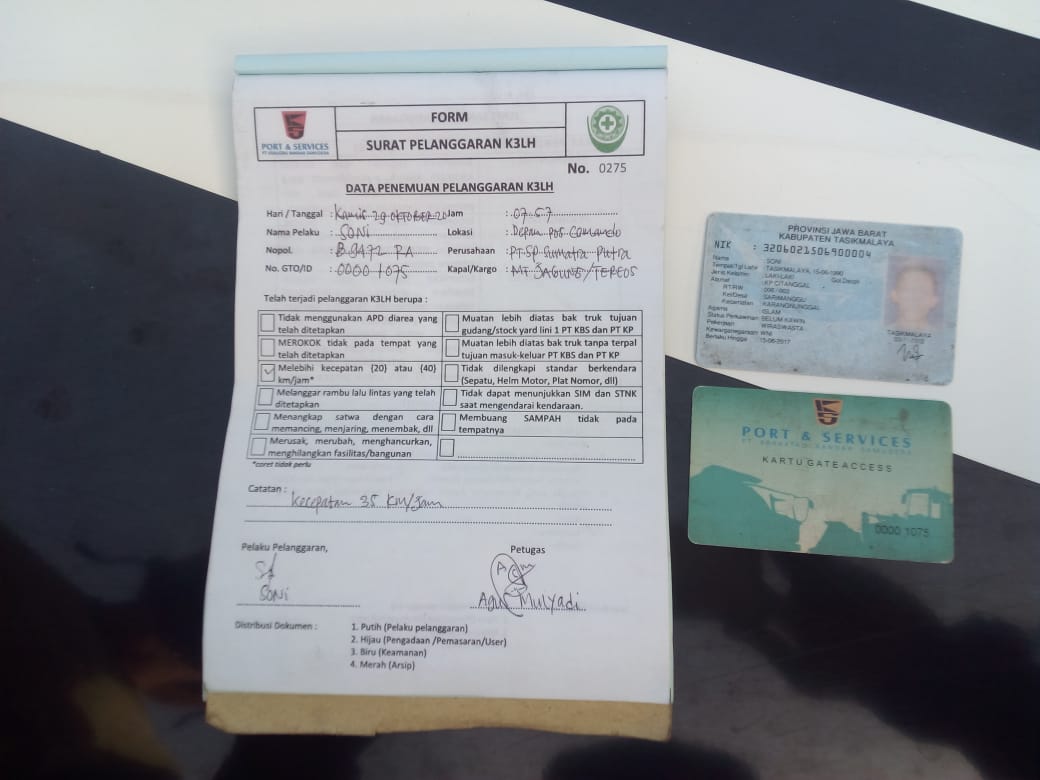 PORT & SERVICES
PT KRAKATAU BANDAR SAMUDERA
FORM
SURAT PELANGGARAN K3LH
No. 0275
DATA PENEMUAN PELANGGARAN K3LH
Hari / Tanggal : Kamis 29 OKTOBER 20 Jam : 07.57
Nama Pelaku : SONI Lokasi : Depan Pos Comando
Nopol. : B 9472 RA Perusahaan : PT. SP. Sumatra Putra
No. GTO/ID : 0000 1075 Kapal/Kargo : MT. JAGUNG / TEREOS
Telah terjadi pelanggaran K3LH berupa :
Tidak menggunakan APD diarea yang telah ditetapkan
Muatan lebih diatas bak truk tujuan gudang/stock yard lini 1 PT KBS dan PT KP
MEROKOK tidak pada tempat yang telah ditetapkan
Muatan lebih diatas bak truk tanpa terpal tujuan masuk-keluar PT KBS dan PT KP
✓ Melebihi kecepatan (20) atau (40) km/jam*
Tidak dilengkapi standar berkendara (Sepatu, Helm Motor, Plat Nomor, dll)
Melanggar rambu lalu lintas yang telah ditetapkan
Tidak dapat menunjukkan SIM dan STNK saat mengendarai kendaraan.
Menangkap satwa dengan cara memancing, menjaring, menembak, dll
Membuang SAMPAH tidak pada tempatnya
Merusak, merubah, menghancurkan, menghilangkan fasilitas/bangunan
*coret tidak perlu
Catatan : kecepatan 35 KM/Jam
Pelaku Pelanggaran,
SONI
Petugas
Agus Mulyadi
Distribusi Dokumen :
1. Putih (Pelaku pelanggaran)
2. Hijau (Pengadaan /Pemasaran/User)
3. Biru (Keamanan)
4. Merah (Arsip)
PROVINSI JAWA BARAT
KABUPATEN TASIKMALAYA
NIK : 3206021506900004
Nama : SONI
Tempat/Tgl Lahir : TASIKMALAYA, 15-06-1990
Jenis Kelamin : LAKI-LAKI Gol Darah
Alamat : KP CITANGGAL
RT/RW : 006 / 003
Kel/Desa : SARIMANGGU
Kecamatan : KARANGNUNGGAL
Agama : ISLAM
Status Perkawinan : BELUM KAWIN
Pekerjaan : WIRASWASTA
Kewarganegaraan : WNI
Berlaku Hingga : 15-06-2017
TASIKMALAYA
PORT & SERVICES
PT KRAKATAU BANDAR SAMUDERA
KARTU GATE ACCESS
0000 1075